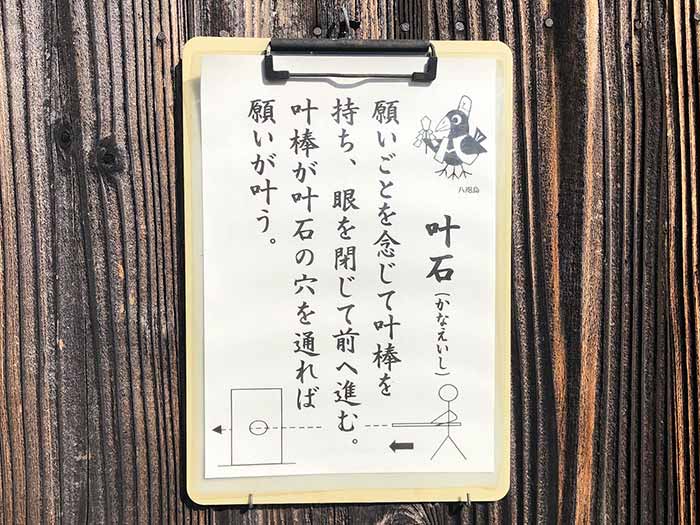 八咫烏
叶石(かなえいし)
願いごとを念じて叶棒を
持ち、眼を閉じて前へ進む。
叶棒が叶石の穴を通れば
願いが叶う。